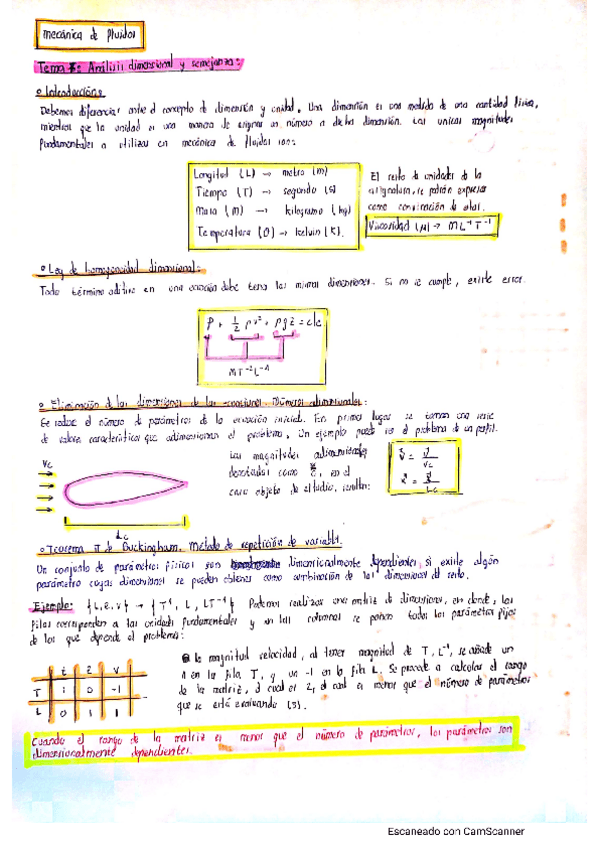 mecánica de fluidos
Tema 7: Análisis dimensional y semejanza:
• Introducción:
Debemos diferenciar entre el concepto de dimensión y unidad. Una dimensión es una medida de una cantidad física,
mientras que la unidad es una manera de asignar un número a dicha dimensión. Las unicas magnitudes
fundamentales a utilizar en mecánica de fluidos son:
Longitud (L) → metro (m)
Tiempo (T) → segundo (s)
Masa (M) → kilogramo (kg)
Temperatura (θ) → kelvin (K).
El resto de unidades de la
asignatura, se podrán expresar
como combinación de estas.
Viscosidad (μ) → M L⁻¹ T⁻¹
• Ley de homogeneidad dimensional:
Todo término aditivo en una ecuación debe tener las mismas dimensiones. Si no se cumple, existe error.
P + 1/2 ρ v² + ρ g z = cte
M T⁻² L⁻¹
• Eliminación de las dimensiones de las ecuaciones. Números adimensionales:
Se reduce el número de parámetros de la ecuación inicial. En primer lugar se toman una serie
de valores característicos que adimensionan el problema. Un ejemplo puede ser el problema de un perfil.
Vc
Lc
Las magnitudes adimensionales
denotadas como, en el
caso objeto de estudio, resultan:
• Teorema π de Buckingham. Método de repetición de variable.
Un conjunto de parámetros físicos son dimensionalmente dependientes, si existe algún
parámetro cuyas dimensiones se pueden obtener como combinación de las dimensiones del resto.
Ejemplo: {L, t, v} → {T¹, L, LT⁻¹} Podemos realizar una matriz de dimensiones, en donde, las
filas corresponden a las unidades fundamentales y en las columnas se ponen todos los parámetros fijos
de los que depende el problema:
T 1 0 -1
L 0 1 1
la magnitud velocidad, al tener magnitud de T, L⁻¹, se añade un
1 en la fila T, y un -1 en la fila L. Se procede a calcular el rango
de la matriz, el cual es 2, el cual es menor que el número de parámetros
que se está evaluando (3).
Cuando el rango de la matriz es menor que el número de parámetros, los parámetros son
dimensionalmente dependientes.
Escaneado con CamScanner